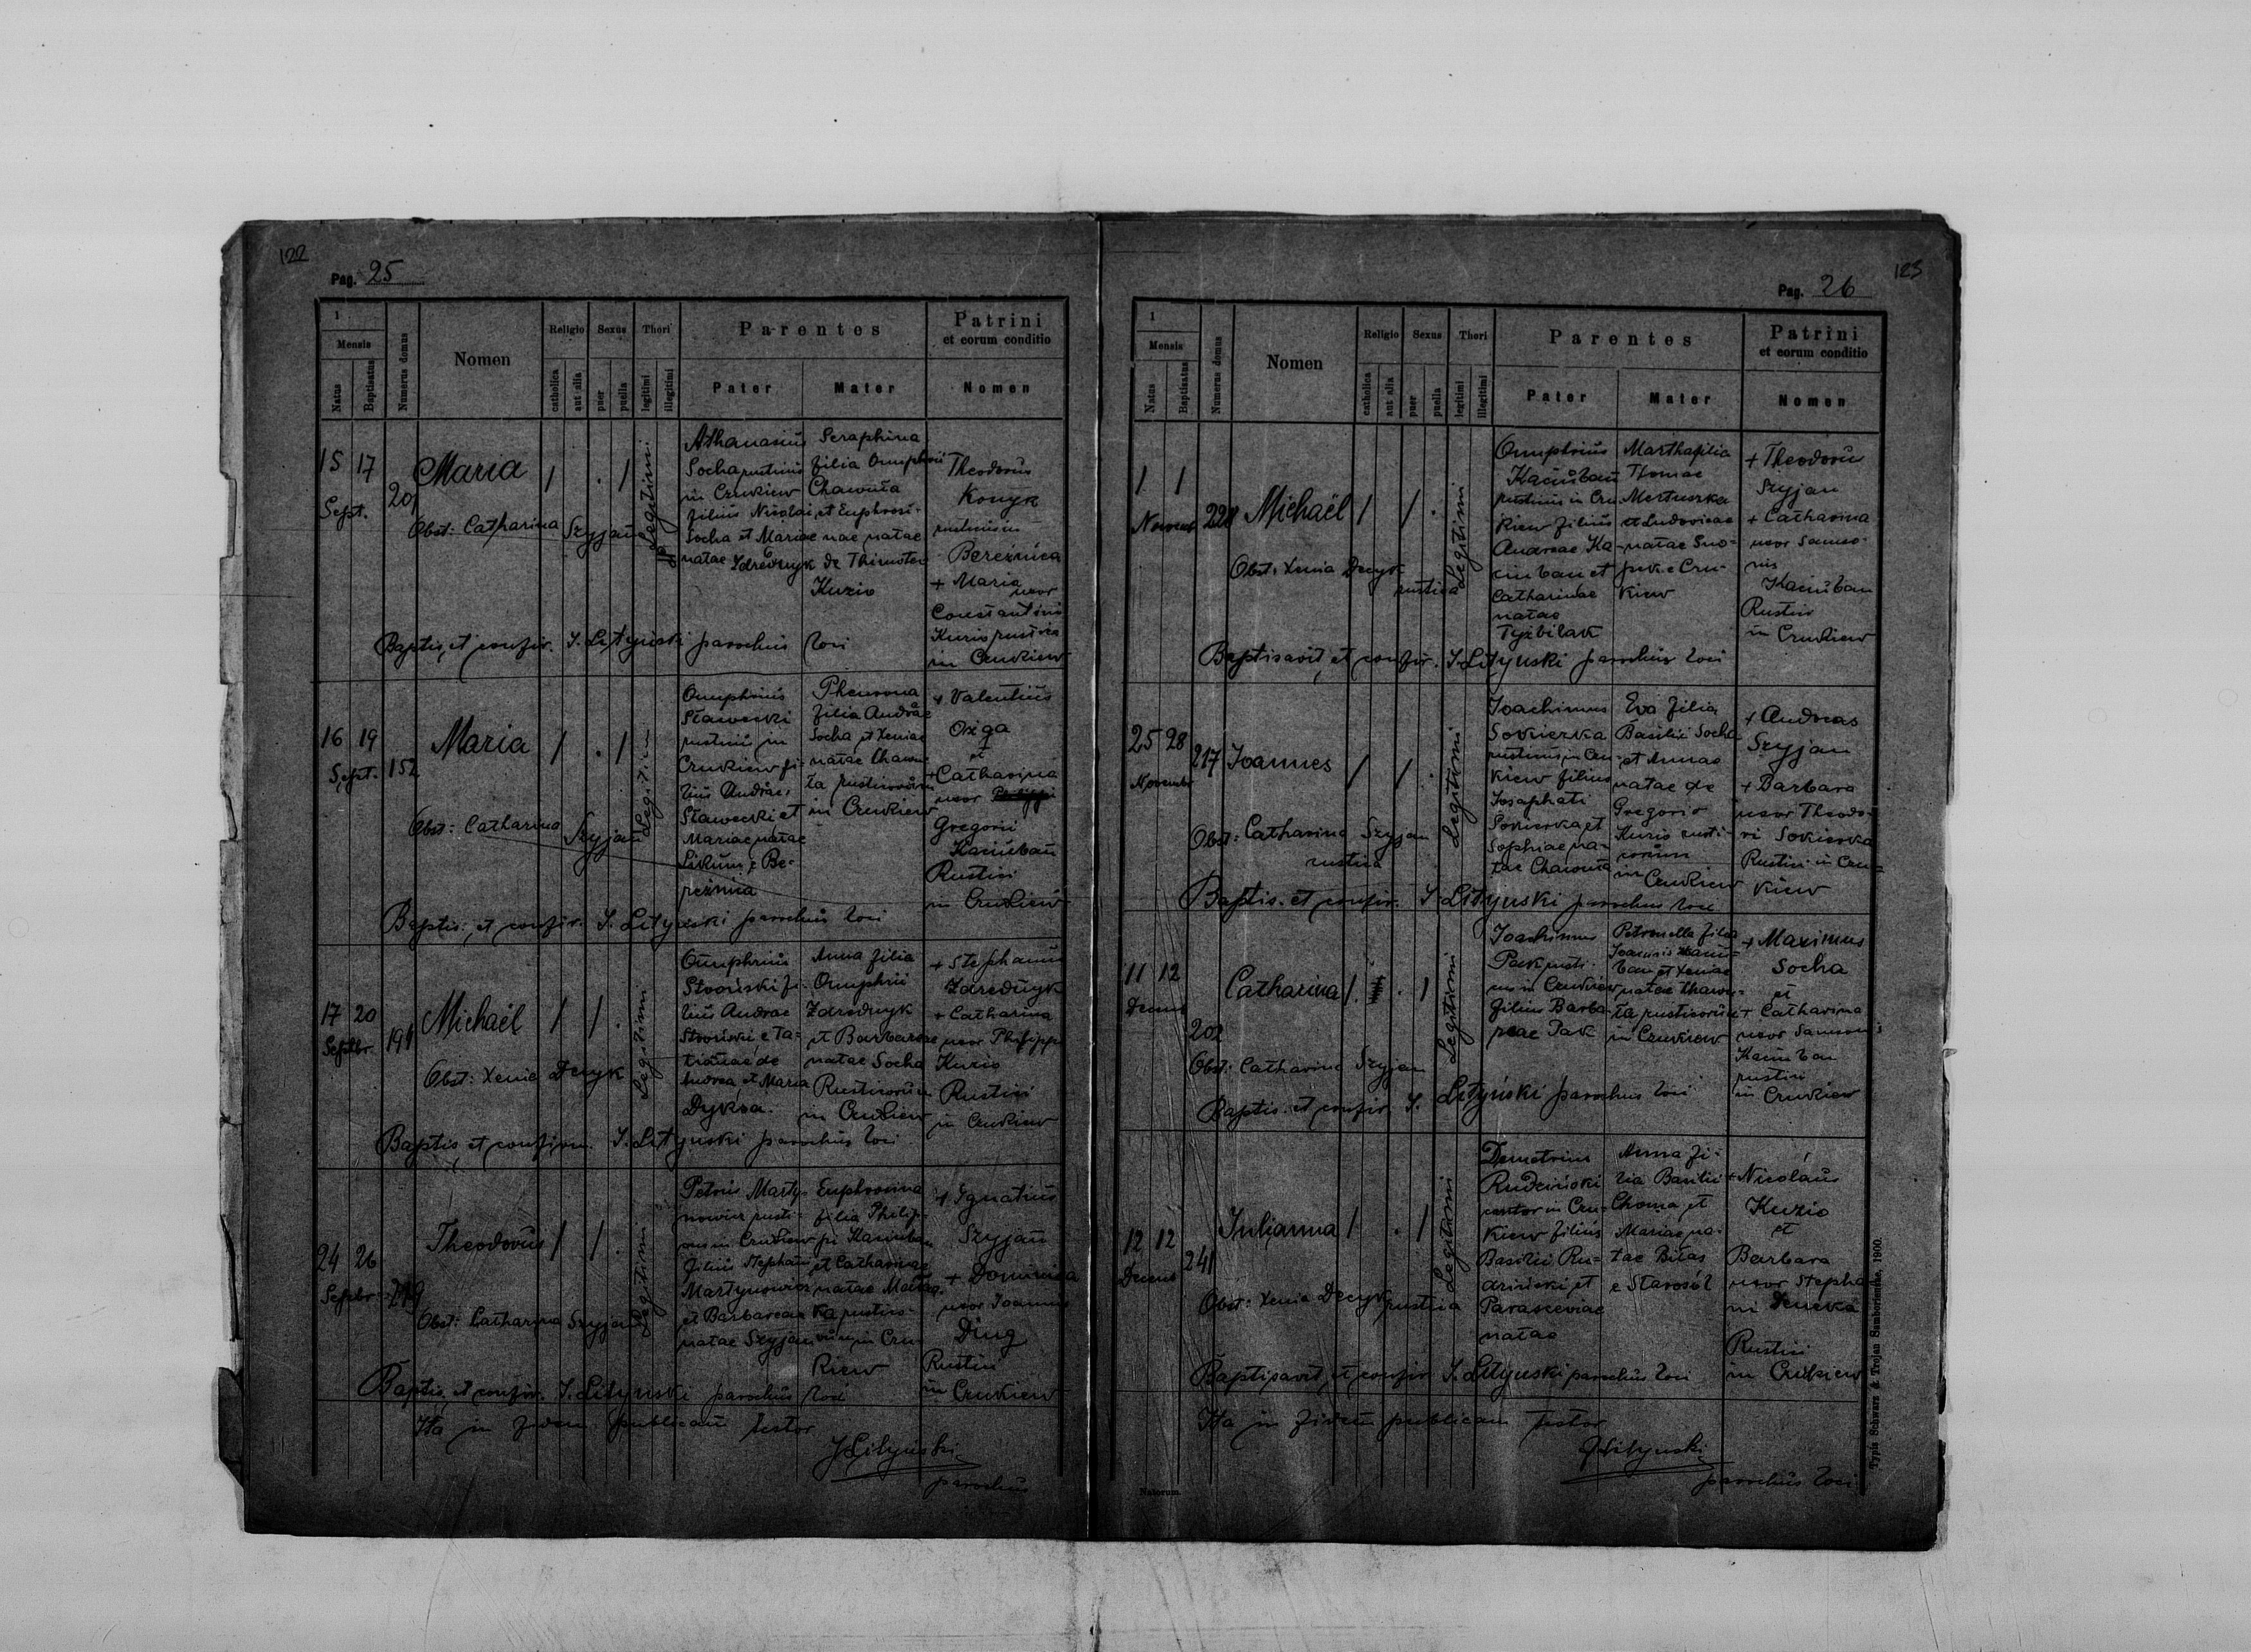 122
Pag. 25
1
Mensis
Natus
Baptisatus
Numerus domus
Nomen
Religio
catholica
aut alia
Sexus
puer
puella
Thori
legitimi
illegitimi
Parentes
Pater
Mater
Patrini
et eorum conditio
Nomen
15 17
Sept.
201
Maria
Obst: Catharina Szyjan
Legitimi
Athanasius
Socha rusticus
in Czukiew
filius Nicolai
Socha et Mariae
natae
Seraphina
filia Onuphrii
Chawuła
et Euphrosi-
nae natae
de Thimoteo
Kuzio
Theodorus
Konyk
rusticus in
Bereżnica
+ Maria
uxor
Constantini
Kuzio rustici
in Czukiew
Baptis. et confir. J. Lityński parochus loci
16 19
Sept.
152
Maria
Obst: Catharina Szyjan
Legitimi
Onuphrius
Stawecki
rusticus in
Czukiew fi-
lius Andreae
Stawecki et
Mariae natae
e Be-
reżnica
filia Andreae
Socha et Xeniae
natae Chawu-
ła rusticorum
in Czukiew
+ Valentius
et
+ Catharina
uxor
Gregorii
Kaciuban
Rustici
in Czukiew
Baptis. et confir. J. Lityński parochus loci
17 20
Septbr.
191
Michaël
Obst: Xenia Decyk
Legitimi
Onuphrius
fi-
lius Andreae
e Ta-
tianae de
Andrea et Maria
Anna filia
Onuphrii
Zdrednyk
et Barbarae
natae Socha
Rusticorum
in Czukiew
+ Stephanus
Zdrednyk
+ Catharina
uxor Philippi
Kuzio
Rustici
in Czukiew
Baptis. et confirm. J. Lityński parochus loci
24 26
Septbr.
Theodorus
Obst: Catharina Szyjan
Legitimi
Petrus Marty-
nowicz rusti-
cus in Czukiew
filius Stephani
Martynowicz
et Barbarae
natae Szyjan
Euphrosina
filia Philip-
pi Kaciuban
et Catharinae
natae
rustico-
rum in Czu-
kiew
+ Ignatius
Szyjan
+ Dominica
uxor Joannis
Rustici
in Czukiew
Baptis. et confir. J. Lityński parochus loci
Ita in fidem publicam testor
J Lityński
parochus
123
Pag. 26
1
Mensis
Natus
Baptisatus
Numerus domus
Nomen
Religio
catholica
aut alia
Sexus
puer
puella
Thori
legitimi
illegitimi
Parentes
Pater
Mater
Patrini
et eorum conditio
Nomen
1 1
Novemb
Michaël
Obst: Xenia Decyk
rustica
Legitimi
Onuphrius
Kaciuban
rusticus in Czu-
kiew filius
Andreae Ka-
ciuban et
Catharinae
natae
Tyzbilak
Martha filia
Thomae
et Ludovicae
natae
e Czu-
kiew
+ Theodorus
Szyjan
+ Catharina
uxor Samso-
nis
Kaciuban
Rustici
in Czukiew
Baptisavit et confir. J. Lityński parochus loci
25 28
Novembr
217
Joannes
Obst: Catharina Szyjan
rustica
Legitimi
Joachimus
Sokierka
rusticus in Czu-
kiew filius
Josaphati
Sokierka et
Sophiae na-
tae Chawuła
Eva filia
Basilii Socha
et Annae
natae de
Gregorio
Kuzio rusti-
corum
in Czukiew
+ Andreas
Szyjan
+ Barbara
uxor Theodo-
ri Sokierka
Rustici in Czu-
kiew
Baptis. et confir. J. Lityński parochus loci
11 12
Decemb
202
Catharina
Obst: Catharina Szyjan
Legitimi
Joachimus
Pak rusti-
cus in Czukiew
filius Barba-
rae Pak
Petronella filia
Joannis Kaciu-
ban et Xeniae
natae Chawu-
ła rusticorum
in Czukiew
+ Maximus
Socha
et
+ Catharina
uxor Samsonis
Kaciuban
rustici
in Czukiew
Baptis. et confir. J. Lityński parochus loci
12 12
Decemb
241
Julianna
Obst: Xenia Decyk rustica
Legitimi
Demetrius
Rudziński
cantor in Czu-
kiew filius
Basilii Ru-
dziński et
Parasceviae
natae
Anna fi-
lia Basilii
Choma et
Mariae na-
tae Biłas
e Starosól
+ Nicolaus
Kuzio
et
Barbara
uxor Stepha-
ni
Rustici
in Czukiew
Baptisavit et confir J. Lityński parochus loci
Ita in fidem publicam testor
J Lityński
parochus loci
Natorum.
Typis Schwarz & Trojan Samboriensis, 1900.